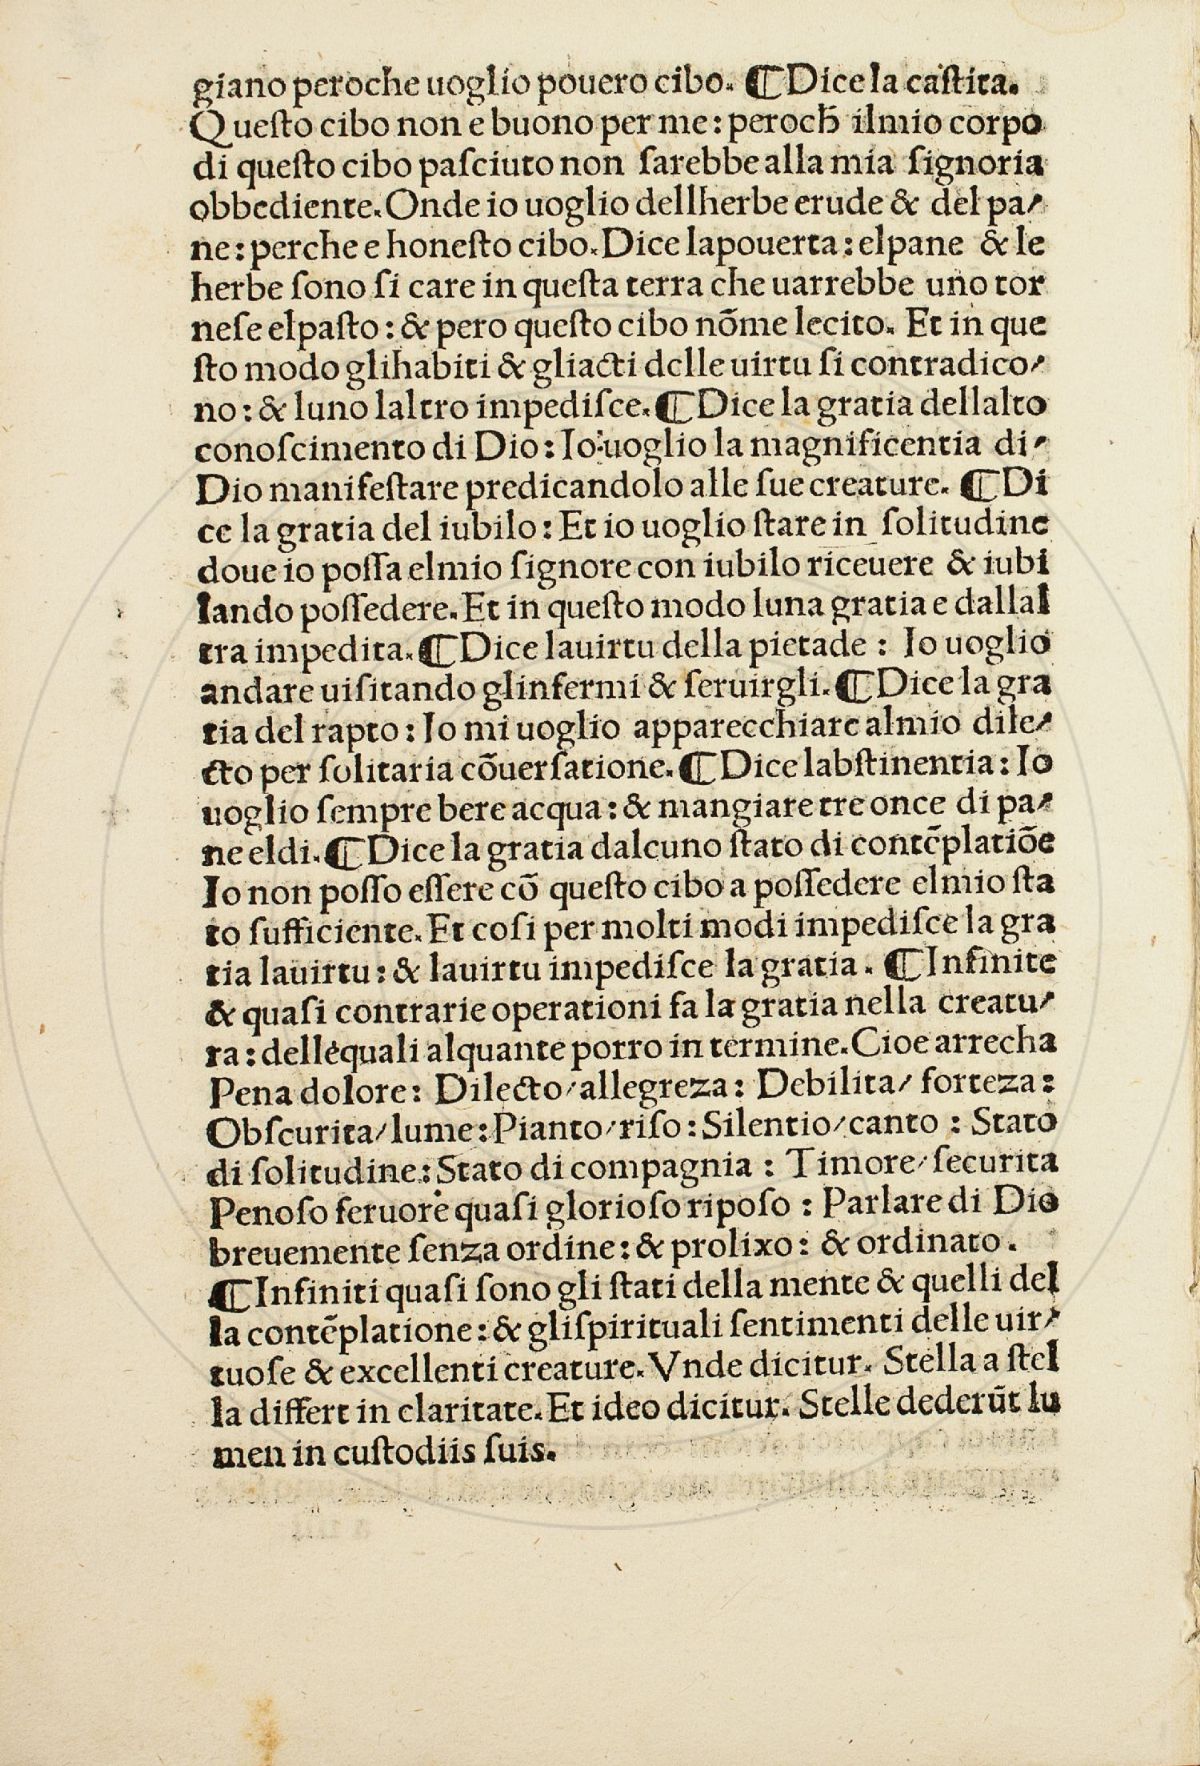 giano peroche uoglio pouero cibo. ¶Dice la caſtita.
Queſto cibo non e buono per me: peroch̄ ilmio corpo
di queſto cibo paſciuto non ſarebbe alla mia ſignoria
obbediente. Onde io uoglio dellherbe erude & del pa/
ne: perche e honeſto cibo. Dice lapouerta: elpane & le
herbe ſono ſi care in queſta terra che uarrebbe uno tor
neſe elpaſto: & pero queſto cibo nōme lecito. Et in que
ſto modo glihabiti & gliacti delle uirtu ſi contradico/
no: & luno laltro impediſce. ¶Dice la gratia dellalto
conoſcimento di Dio: Io uoglio la magnificentia di/
Dio manifeſtare predicandolo alle ſue creature. ¶Di
ce la gratia del iubilo: Et io uoglio ſtare in ſolitudine
doue io poſſa elmio ſignore con iubilo riceuere & iubi
lando poſſedere. Et in queſto modo luna gratia e dallal
tra impedita. ¶Dice lauirtu della pietade: Io uoglio
andare uiſitando glinfermi & ſeruirgli. ¶Dice la gra
tia del rapto: Io mi uoglio apparecchiare almio dile/
cto per ſolitaria cōuerſatione. ¶Dice labſtinentia: Io
uoglio ſempre bere acqua: & mangiare tre once di pa/
ne eldi. ¶Dice la gratia dalcuno ſtato di contēplatiōe
Io non poſſo eſſere cō queſto cibo a poſſedere elmio ſta
to ſufficiente. Et coſi per molti modi impediſce la gra
tia lauirtu: & lauirtu impediſce la gratia. ¶Infinite
& quaſi contrarie operationi fa la gratia nella creatu/
ra: dellequali alquante porro in termine. Cioe arrecha
Pena dolore: Dilecto/allegreza: Debilita/ forteza:
Obſcurita/lume: Pianto/riſo: Silentio/canto: Stato
di ſolitudine: Stato di compagnia: Timore/ſecurita
Penoſo feruore quaſi glorioſo ripoſo: Parlare di Dio
breuemente ſenza ordine: & prolixo: & ordinato.
¶Infiniti quaſi ſono gli ſtati della mente & quelli del
la contēplatione: & gliſpirituali ſentimenti delle uir/
tuoſe & excellenti creature. Vnde dicitur. Stella a ſtel
la differt in claritate. Et ideo dicitur. Stelle dederūt lu
men in cuſtodiis ſuis.